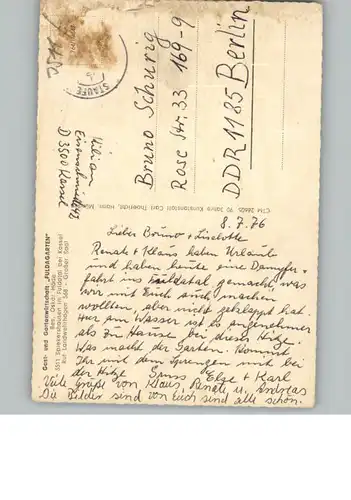 STAUFE
Kilian
Eisenschmiede
D 3500 Kassel
Bruno Schurig
Rosestr. 33 169-9
DDR 1185 Berlin
Gast- und Gartenwirtschaft „FULDAGARTEN"
Bes. Oskar
3501 Spiekershausen im Fuldatal bei Kassel
Ruf Landwehrhagen 568 - Großer Saal
8.7.76
Lieber Bruno + Liselotte
Renate + Klaus haben Urlaub
und haben heute eine Dampfer
fahrt ins Fuldatal gemacht, was
wir mit Euch auch machen
wollten, aber nicht geklappt hat
Hier am Wasser ist es angenehmer
als zu Hause bei dieser Hitze.
Was macht der Garten. Kommt
Ihr mit dem Sprengen mit bei
der Hitze Gruss Else + Karl
Viele Grüße von Klaus, Renate u. Andreas
Die Bilder sind von Euch sind alle schön.